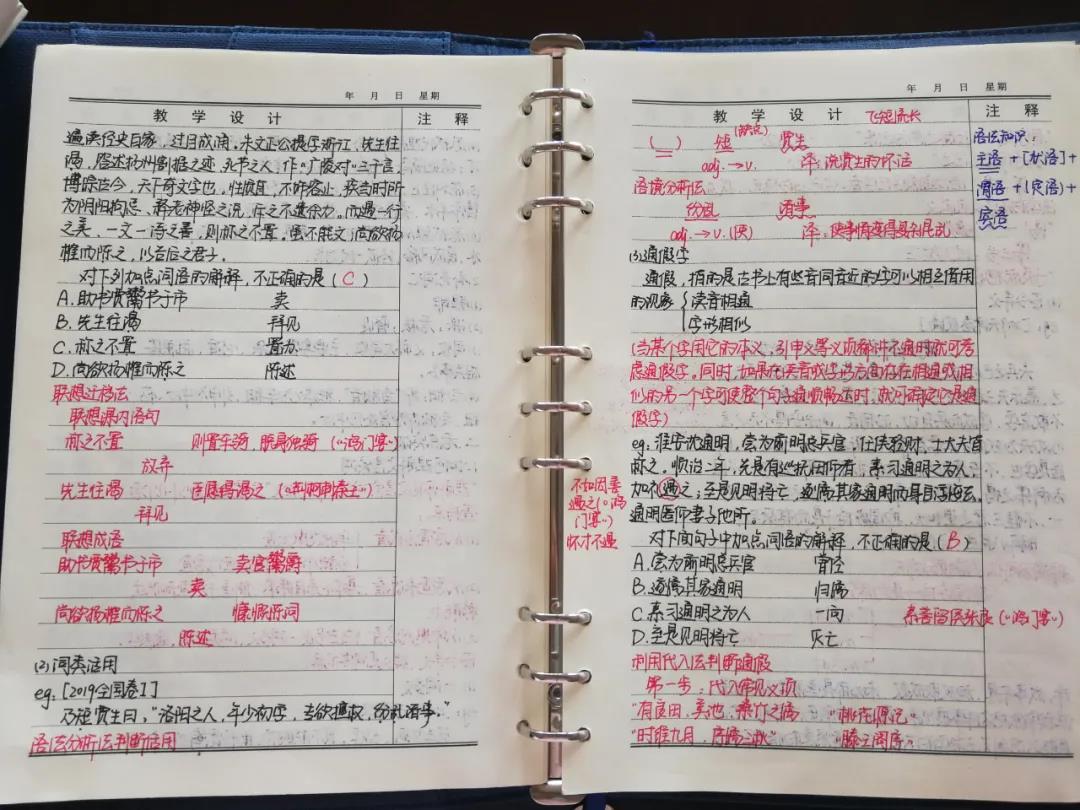 年 月 日 星期
教 学 设 计 注 释
遍读经史百家，过目成诵。朱文正公提学浙江，先生往
谒，答述扬州割据之迹，永书之人，作《广陵对》三千言，
博综古今，天下奇文学也。性质直，不饰容止，疾当时所
为阴阳拘忌、释老神怪之说，斥之不遗余力。而遇一行
之美，一文一诗之善，则称之不置。虽不能文，尚欲扬
榷而陈之，以告后之君子。
对下列加点词语的解释，不正确的是（C）
A.助书贾鬻书于市 卖
B.先生往谒 拜见
C.称之不置 置办
D.尚欲扬榷而陈之 陈述
联想迁移法
联想课内语句
称之不置 则置车骑，脱身独骑（《鸿门宴》）
放弃
先生往谒 臣展得谒之（《荆轲刺秦王》）
拜见
联想成语
助书贾鬻书于市 卖官鬻爵
卖
尚欲扬榷而陈之 慷慨陈词
陈述
(2)词类活用
eg.[2019全国卷I]
乃短贾生曰，"洛阳之人，年少初学，专欲擅权，纷乱诸事。"
语法分析法判断活用
年 月 日 星期
教 学 设 计 飞短流长 注 释
（ ） 短(缺点) 贾生
adj.→v. 译：说贾生的坏话
语境分析法
纷乱 诸事
adj.→v.(使) 译：使事情变得纷乱
语法知识：
主语+[状语]+
谓语+(定语)+
宾语
(3)通假字
通假，指的是古书上有些音同音近的字可以相互借用
的现象{读音相通
字形相似
(当某个字用它的本义、引申义等义项解释不通时就可考
虑通假字。同时，如果在读音或字形方面存在相通或相
似的另一个字可使整个句子通顺畅达时，就可确定它是通
假字)
eg：淮安沈通明，尝为前明总兵官，任侠轻财，士大夫皆
称之。顺治二年，先是有巡抚田仰者，素习通明之为人，
加礼遇之；至是见明将亡，遂属其家通明而身自浮海去。
通明匿仰妻子他所。
不如因善
遇之（《鸿
门宴》）
怀才不遇
对下面句子中加点词语的解释，不正确的是（B）
A.尝为前明总兵官 曾经
B.遂属其家通明 归属
C.素习通明之为人 一向 素善留侯张良（《鸿门宴》）
D.至是见明将亡 灭亡
利用代入法判断通假
第一步：代入常见义项
"有良田、美池、桑竹之属" 《桃花源记》
"时维九月，序属三秋" 《滕王阁序》